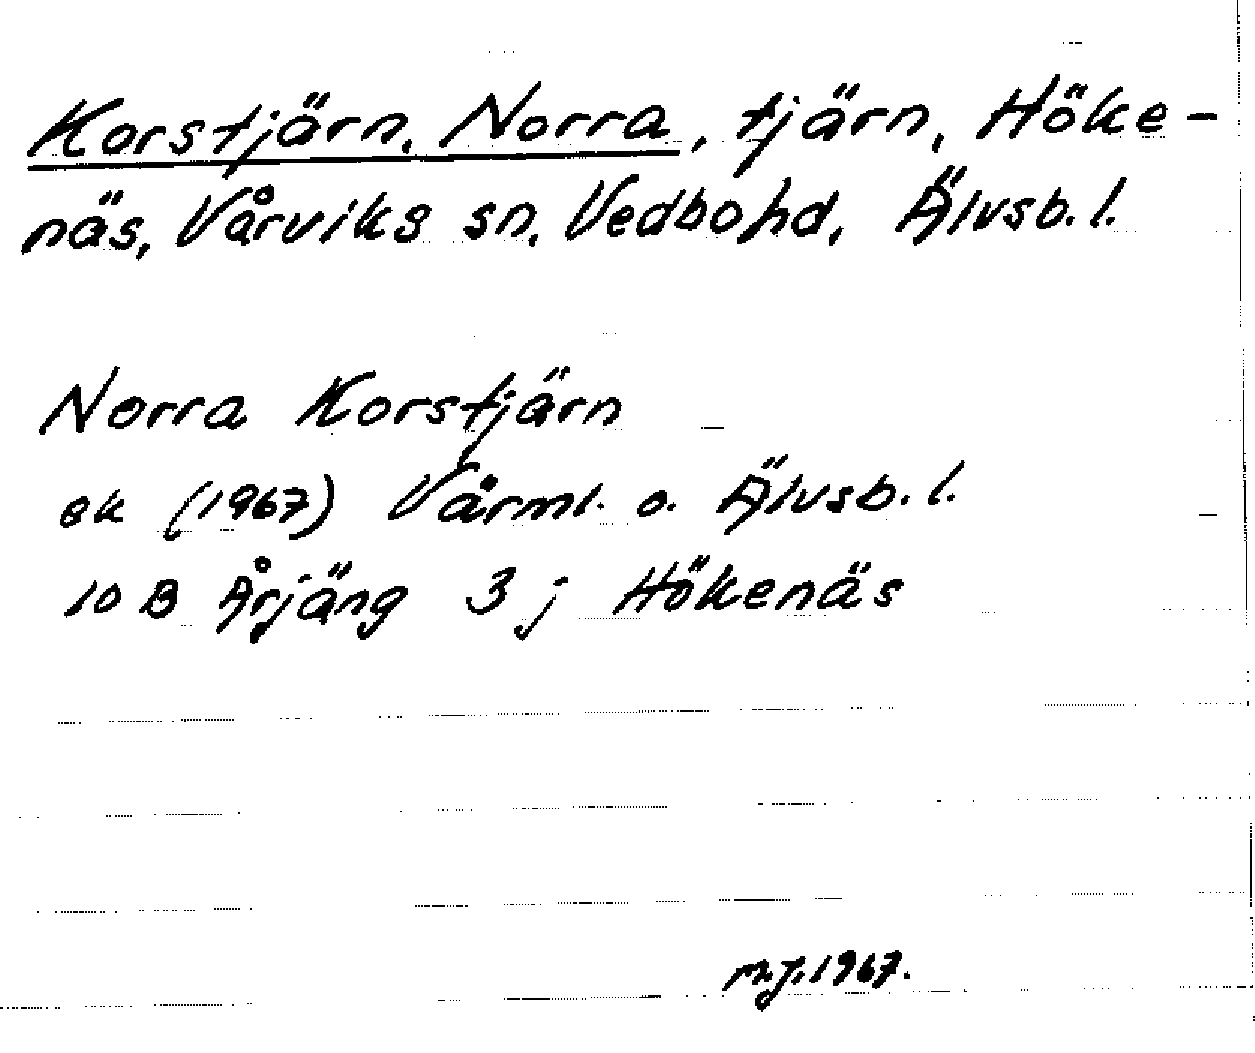 Korstjärn, Norra, tjärn, Höke-
näs, Vårviks sn, Vedbohd, Älvsb. l.
Norra Korstjärn
ek (1967) Värml. o. Älvsb. l.
10 B Årjäng 3 j Hökenäs
m.j. 1967.